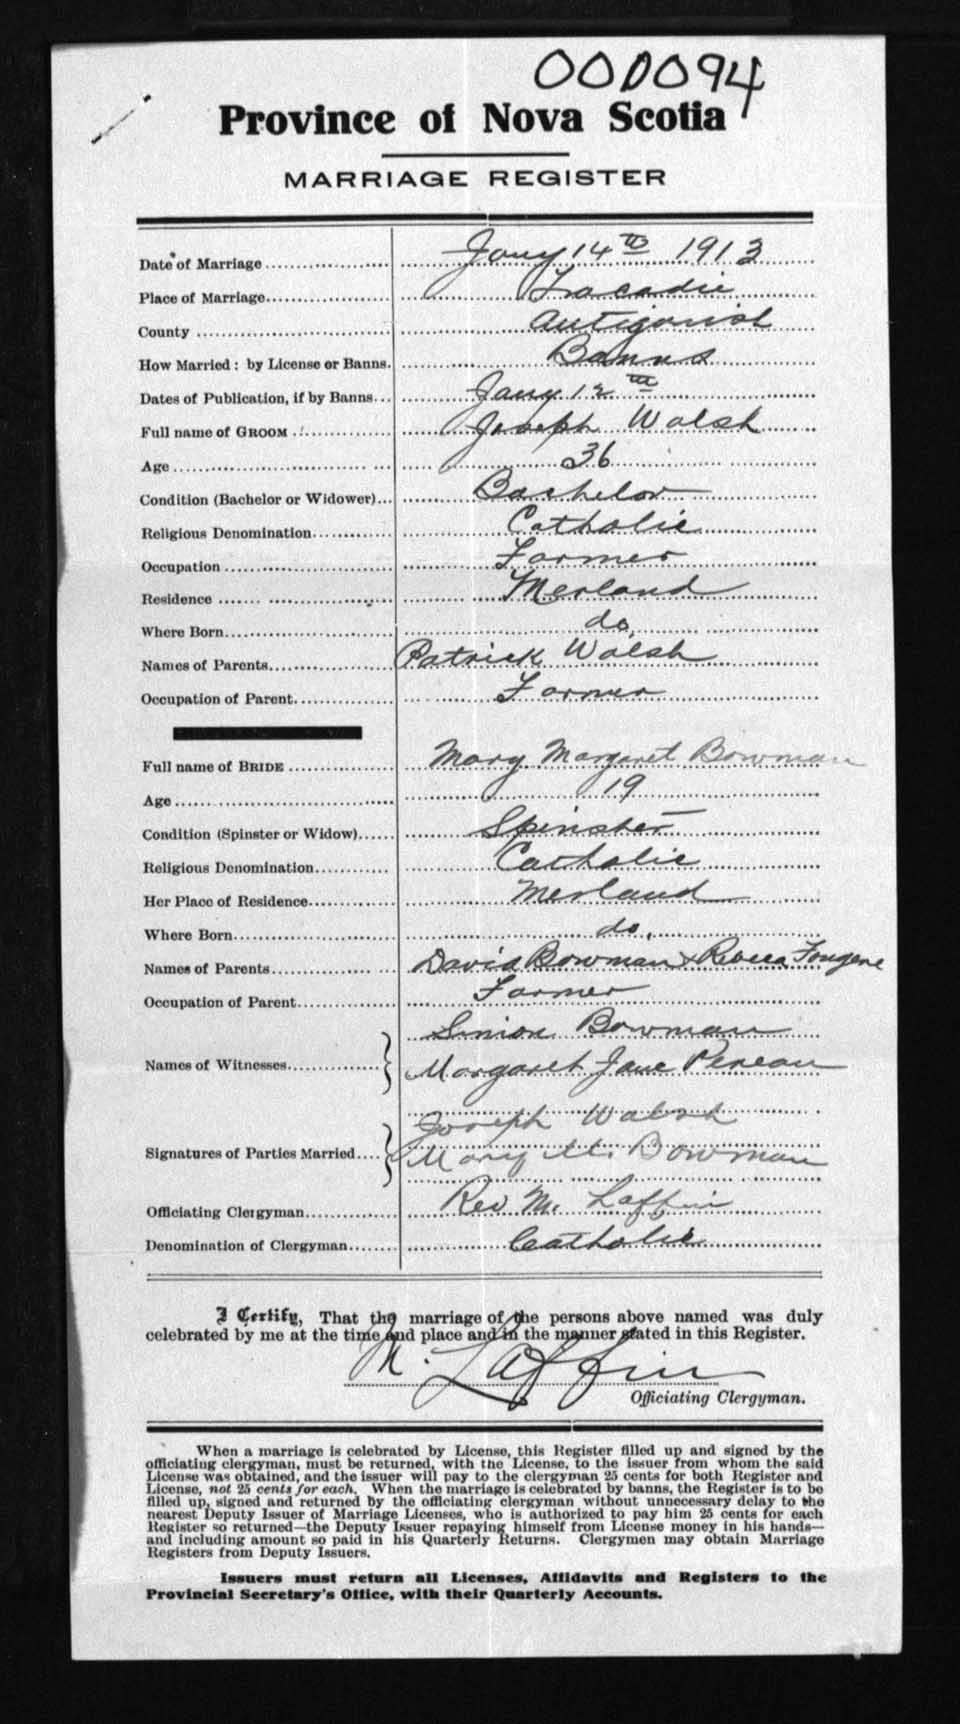 000094
Province of Nova Scotia
MARRIAGE REGISTER
Date of Marriage Jany 14th 1913
Place of Marriage Tracadie
County Antigonish
How Married: by License or Banns. Banns
Dates of Publication, if by Banns Jany 12th
Full name of GROOM Joseph Walsh
Age 36
Condition (Bachelor or Widower) Bachelor
Religious Denomination Catholic
Occupation Farmer
Residence Merland
Where Born do.
Names of Parents Patrick Walsh
Occupation of Parent Farmer
Full name of BRIDE Mary Margaret Bowman
Age 19
Condition (Spinster or Widow) Spinster
Religious Denomination Catholic
Her Place of Residence Merland
Where Born do.
Names of Parents David Bowman & Rebeca Fougere
Occupation of Parent Farmer
Simon Bowman
Names of Witnesses Margaret Jane Pereau
Joseph Walsh
Signatures of Parties Married Mary M. Bowman
Officiating Clergyman Rev M. Laffin
Denomination of Clergyman Catholic
I Certify, That the marriage of the persons above named was duly
celebrated by me at the time and place and in the manner stated in this Register.
M. Laffin
Officiating Clergyman.
When a marriage is celebrated by License, this Register filled up and signed by the
officiating clergyman, must be returned, with the License, to the issuer from whom the said
License was obtained, and the issuer will pay to the clergyman 25 cents for both Register and
License, not 25 cents for each. When the marriage is celebrated by banns, the Register is to be
filled up, signed and returned by the officiating clergyman without unnecessary delay to the
nearest Deputy Issuer of Marriage Licenses, who is authorized to pay him 25 cents for each
Register so returned—the Deputy Issuer repaying himself from License money in his hands—
and including amount so paid in his Quarterly Returns. Clergymen may obtain Marriage
Registers from Deputy Issuers.
Issuers must return all Licenses, Affidavits and Registers to the
Provincial Secretary's Office, with their Quarterly Accounts.